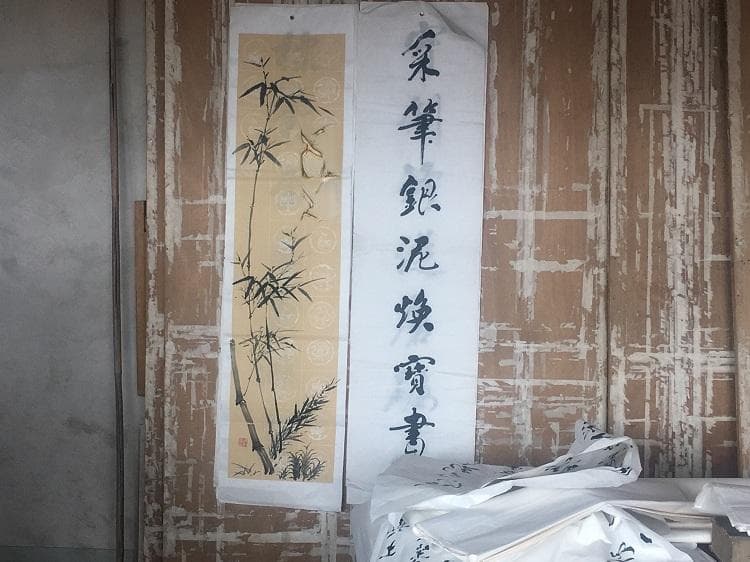 采筆銀泥煥寶書